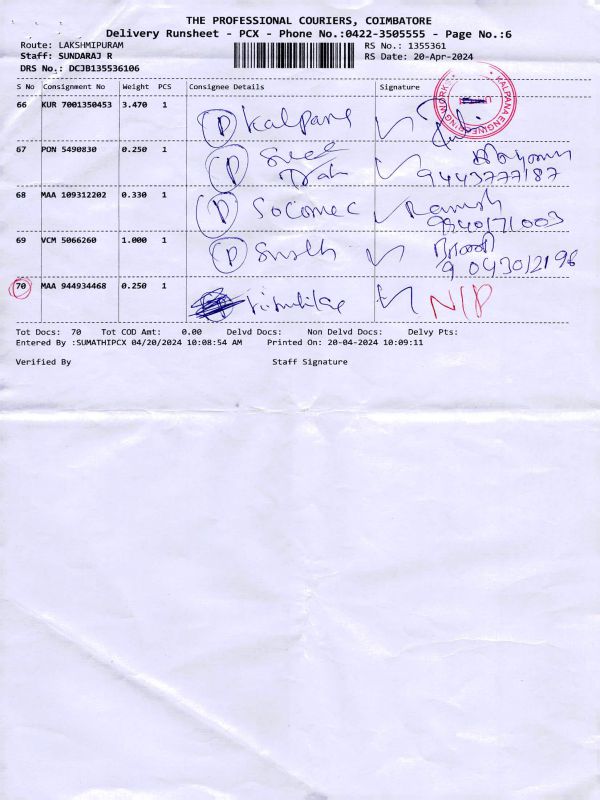 THE PROFESSIONAL COURIERS, COIMBATORE
Delivery Runsheet - PCX - Phone No.:0422-3505555 - Page No.:6
Route: LAKSHMIPURAM RS No.: 1355361
Staff: SUNDARAJ R RS Date: 20-Apr-2024
DRS No.: DCJB135536106
S No Consignment No Weight PCS Consignee Details Signature
KALPANA ENGINEERING WORKS
66 KUR 7001350453 3.470 1 D Kalpana
67 PON 5490830 0.250 1 D Sree
9443777187
68 MAA 109312202 0.330 1 D Socomec Ramesh
9840171003
69 VCM 5066260 1.000 1 D
9043012196
70 MAA 944934468 0.250 1 N/P
Tot Docs: 70 Tot COD Amt: 0.00 Delvd Docs: Non Delvd Docs: Delvy Pts:
Entered By :SUMATHIPCX 04/20/2024 10:08:54 AM Printed On: 20-04-2024 10:09:11
Verified By Staff Signature